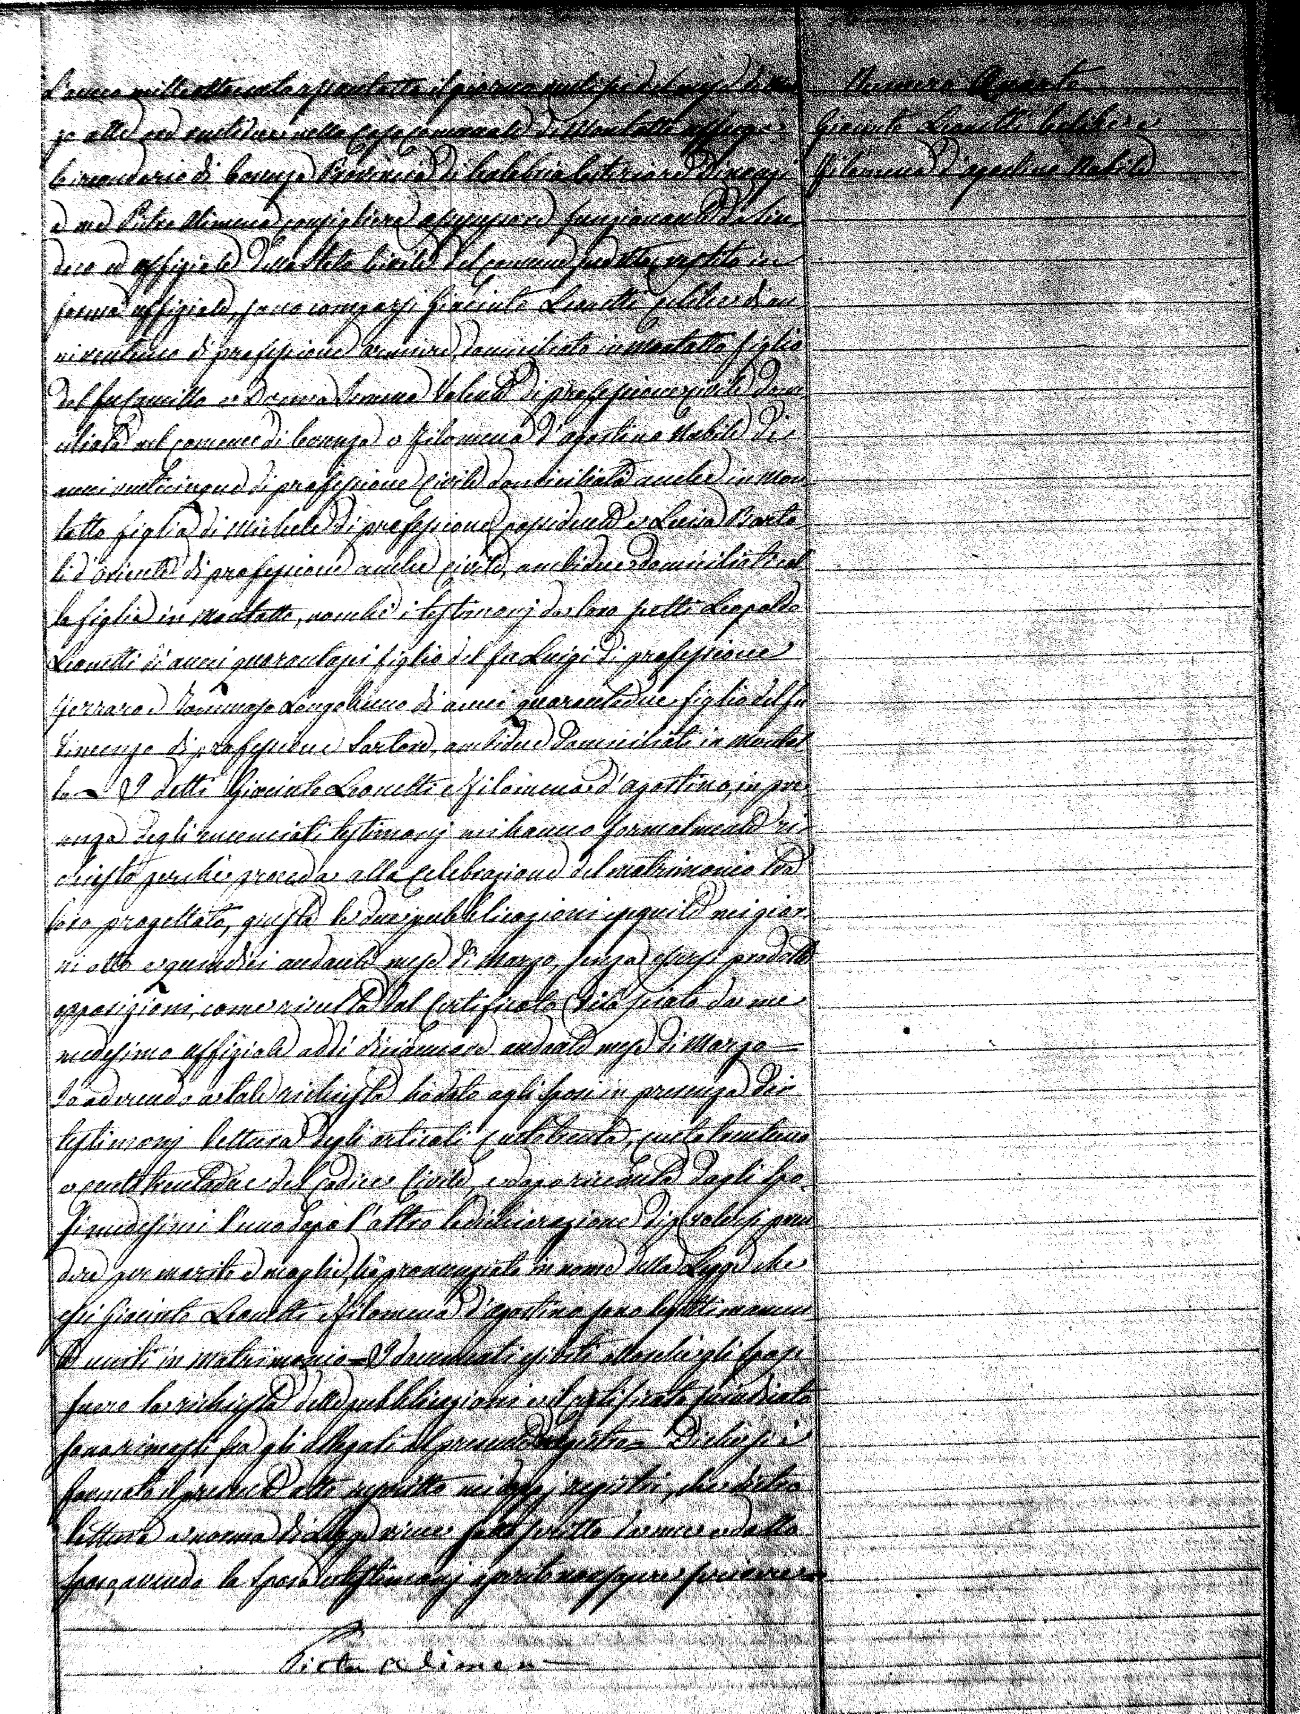 L'anno milleottocentosettantotto il giorno ventisei del mese di Mar
zo alle ore venti due nella Casa Comunale di Montalto Uffugo
Circondario di Cosenza Provincia di Calabria Citeriore Dinanzi
a me Pietro Alimena consigliere assessore funzionante da Sin
daco ed uffiziale dello Stato Civile del comune suddetto vestito in
forma uffiziale, sono comparsi Giacinto Leonetti celibe di an
ni ventinove di professione domiciliato in Montalto figlio
del fu Camillo e Donna Valente di professione civile domi
ciliata nel comune di Cosenza e Filomena d'agostino Nubile di
anni venticinque di professione Civile domiciliata anche in Mon
talto figlia di Michele di professione possidente e Luisa Barto
li d'Oriente di professione anche civile, ambidue domiciliati col
la figlia in Montalto, nonché i testimonj da loro scelti Leopoldo
Leonetti di anni quarantasei figlio del fu Luigi di professione
Ferraro e Tommaso Longobucco di anni quarantadue figlio del fu
Vincenzo di professione Sartore, ambidue Domiciliati in Montal
to - I detti Giacinto Leonetti e Filomena d'agostino, in pre
senza degli enunciati testimonj mi hanno formalmente ri
chiesto perché proceda alla Celebrazione del matrimonio tra
loro progettato, giusta le due pubblicazioni eseguite nei gior
ni otto e quindici andante mese di Marzo, senza essersi prodotte
opposizioni, come risulta dal Certificato rilasciato da me
medesimo uffiziale addì diciannove andante mese di Marzo
Io aderendo a tale richiesta ho dato agli sposi in presenza dei
testimonj lettura degli articoli centotrenta, centotrentuno
e centotrentadue del Codice Civile, e dopo ricevuta dagli Spo
si medesimi l'uno dopo l'altro la dichiarazione di volersi pren
dere per marito e moglie, ho pronunziato in nome della Legge che
essi Giacinto Leonetti e Filomena d'agostino sono legittimamen
te uniti in matrimonio = I documenti esibiti
furo la richiesta delle pubblicazioni e il certificato succitato
sono rimasti fra gli allegati al presente registro = Di che si è
formato il presente atto iscritto nei doppj registri, che dietro
lettura a norma di Legge viene sottoscritto da me e dallo
sposo, avendo la sposa e testimonj asserito non sapere scrivere
Pietro Alimena
Numero Quarto
Giacinto Leonetti Celibe e
Filomena d'agostino Nubile